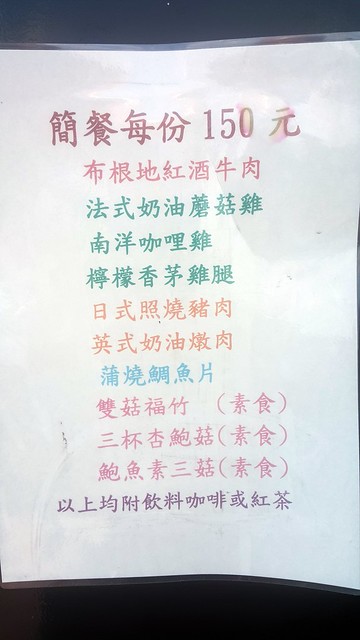 簡餐每份 150 元
布根地紅酒牛肉
法式奶油蘑菇雞
南洋咖哩雞
檸檬香茅雞腿
日式照燒豬肉
英式奶油燉肉
蒲燒鯛魚片
雙菇福竹 （素食）
三杯杏鮑菇（素食）
鮑魚素三菇（素食）
以上均附飲料咖啡或紅茶